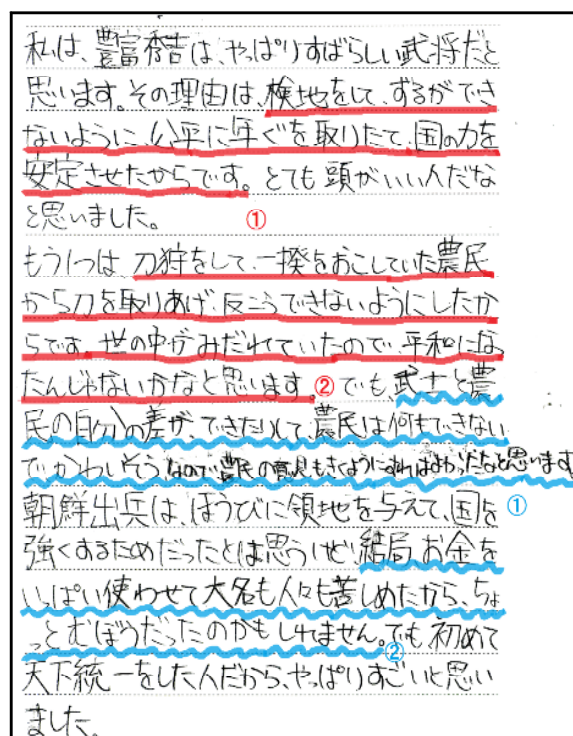 私は、豊富秀吉は、やっぱりすばらしい武将だと
思います。その理由は、検地をして、ずるができ
ないように公平に年ぐを取りたて、国の力を
安定させたからです。とても頭がいい人だな
と思いました。 ①
もう1つは、刀狩をして、一揆をおこしていた農民
から刀を取りあげ、反こうできないようにしたか
らです。世の中がみだれていたので、平和になっ
たんじゃないかなと思います。② でも、武士と農
民の自分の差が、できたりして、農民は何もできない
でかわいそう。なので農民の意見もきくようにすればよかったなと思います
朝鮮出兵は、ほうびに領地を与えて、国を ①
強くするためだったとは思うけど、結局お金を
いっぱい使わせて大名も人々も苦しめたから、ちょ
っとむぼうだったのかもしれません。でも、初めて
②
天下統一をした人だから、やっぱりすごいと思い
ました。